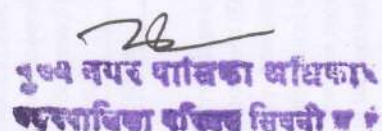 मुख्य नगर पालिका अधिकारी
नगरपालिका परिषद सिवनी म प्र